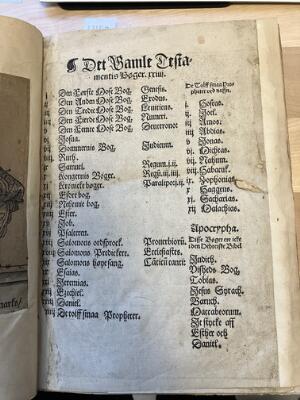 Det Gamle Testa-
mentis Bøger. xxiiij.
j Den Første Mose Bog. Genesis.
ij Den Anden Mose Bog. Exodus.
iij Den Tredie Mose Bog. Leuiticus.
iiij Den Fierde Mose Bog. Numeri.
v Den Femte Mose Bog. Deuteronoi
vj Josua.
vij Dommernis Bog. Judicum.
viij Ruth.
ix Samuel. Regum.j.ij.
x Kongernis Bøger. Regum.iij.iiij.
xj Kronicke bøger. Paralipo.j.ij.
xij Esdre bog.
xiij Nehemie bog.
xiiij Ester.
xv Job.
xvj Psalteren.
xvij Salomons ordsprock. Prouerbiorū.
xviij Salomons Predickere. Ecclesiastes.
xix Salomons høyesang. Cāticū cantic
xx Esaias.
xxj Jeremias.
xxij Ezechiel.
xxiij Daniel.
xxiiij De tolff smaa Propheter.
De Tolff smaa Pro-
pheter ved naffn.
j Hoseas.
ij Joel.
iij Amos.
iiij Abdias.
v Jonas.
vj Micheas.
vij Nahum.
viij Habacuc.
ix Zophonias.
x Haggeus.
xj Sacharias.
xij Malachias.
Apocrypha.
Disse Bøger ere icke
i den Hebreiske Bibel
Judith.
Visheds Bog.
Tobias.
Jesus Syrach.
Baruch.
Maccabeorum.
Je stycke aff
Esther och
Daniel.
marke/